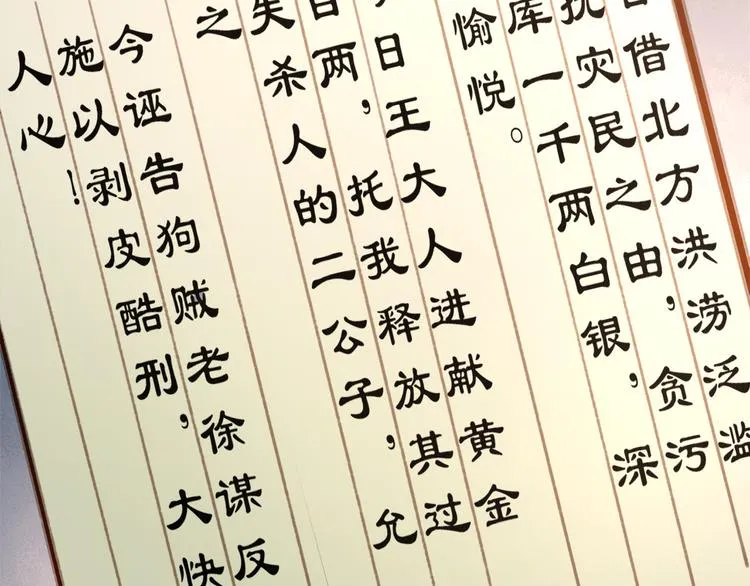 借北方洪涝泛滥
灾民之由，贪污
库一千两白银，深
愉悦。
日王大人进献黄金
百两，托我释放其过
失杀人的二公子，允
之
今诬告狗贼老徐谋反
施以剥皮酷刑，大快
人心！